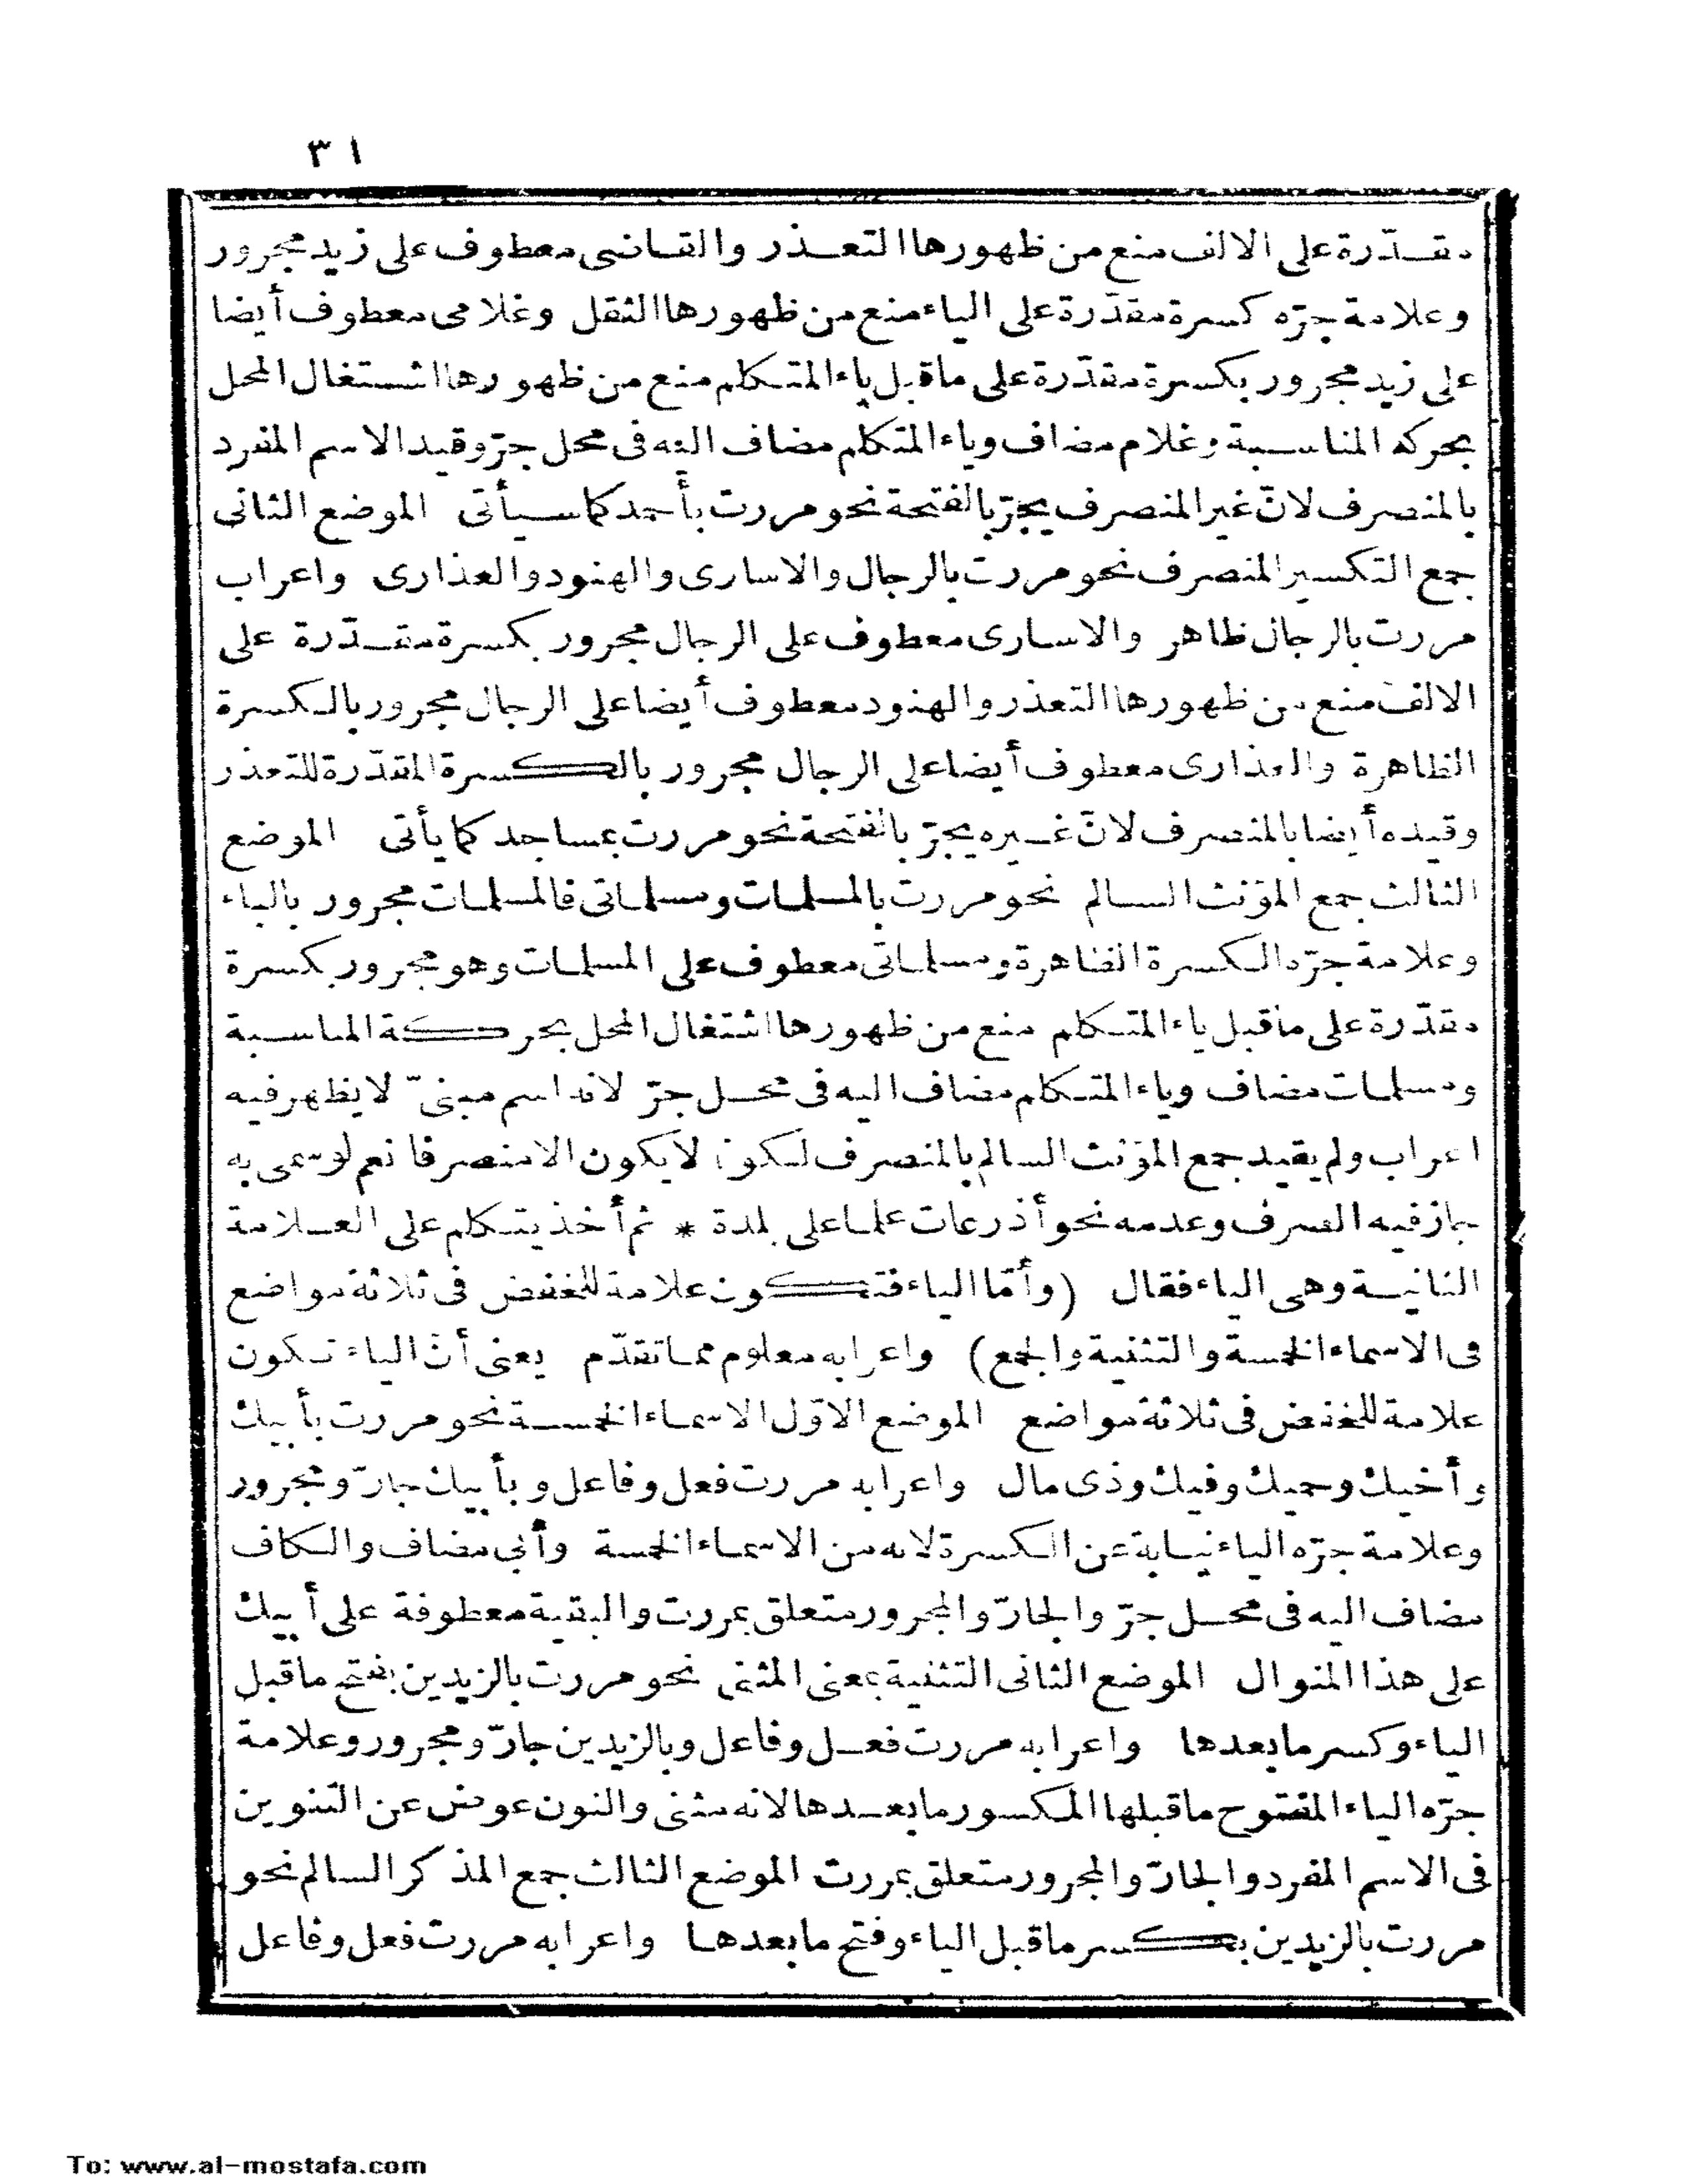 ٣١
مقدّرة على الالف منع من ظهورها التعذر والقاضى معطوف على زيد مجرور
وعلامة جرّه كسرة مقدّرة على الياء منع من ظهورها الثقل وغلامى معطوف أيضا
على زيد مجرور بكسرة مقدّرة على ماقبل ياء المتكلم منع من ظهورها اشستغال المحل
بحركه المناسبة وغلام مضاف وياء المتكلم مضاف اليه فى محل جرّ وقيد الاسم المفرد
بالمنصرف لانّ غير المنصرف يجرّ بالفتحة نحو مررت بأحمد كماسيأتى الموضع الثانى
جمع التكسير المنصرف نحو مررت بالرجال والاسارى والهنود والعذارى واعراب
مررت بالرجال ظاهر والاسارى معطوف على الرجال مجرور بكسرة مقدّرة على
الالف منع من ظهورها التعذر والهنود معطوف أيضا على الرجال مجرور بالكسرة
الظاهرة والعذارى معطوف أيضا على الرجال مجرور بالكسرة المقدّرة للتعذر
وقيده أيضا بالمنصرف لانّ غيره يجرّ بالفتحة نحو مررت بمساجد كما يأتى الموضع
الثالث جمع المؤنث السالم نحو مررت بالمسلمات ومسلماتى فالمسلمات مجرور بالباء
وعلامة جرّه الكسرة الظاهرة ومسلماتى معطوف على المسلمات وهو مجرور بكسرة
مقدّرة على ماقبل ياء المتكلم منع من ظهورها اشتغال المحل بحركة المناسبة
ومسلمات مضاف وياء المتكلم مضاف اليه فى محل جرّ لانه اسم مبنىّ لا يظهر فيه
اعراب ولم يقيد جمع المؤنث السالم بالمنصرف لكونه لا يكون الا منصرفا نعم لو سمى به
جاز فيه الصرف وعدمه نحو أذرعات علما على بلدة * ثم أخذ يتكلم على العلامة
الثانية وهى الياء فقال (وأمّا الياء فتكون علامة للخفض فى ثلاثة مواضع
فى الاسماء الخمسة والتثنية والجمع) واعرابه معلوم مما تقدّم يعنى أنّ الياء تكون
علامة للخفض فى ثلاثة مواضع الموضع الاوّل الاسماء الخمسة نحو مررت بأبيك
وأخيك وحميك وفيك وذى مال واعرابه مررت فعل وفاعل وبأبيك جارّ ومجرور
وعلامة جرّه الياء نيابة عن الكسرة لانه من الاسماء الخمسة وأبى مضاف والكاف
مضاف اليه فى محل جرّ والجارّ والمجرور متعلق بمررت والبقية معطوفة على أبيك
على هذا المنوال الموضع الثانى التثنية بمعنى المثنى نحو مررت بالزيدين بفتح ماقبل
الياء وكسر ما بعدها واعرابه مررت فعل وفاعل وبالزيدين جارّ ومجرور وعلامة
جرّه الياء المفتوح ماقبلها المكسور ما بعدها لانه مثنى والنون عوض عن التنوين
فى الاسم المفرد والجارّ والمجرور متعلق بمررت الموضع الثالث جمع المذكر السالم نحو
مررت بالزيدين بكسر ماقبل الياء وفتح ما بعدها واعرابه مررت فعل وفاعل
To: www.al-mostafa.com